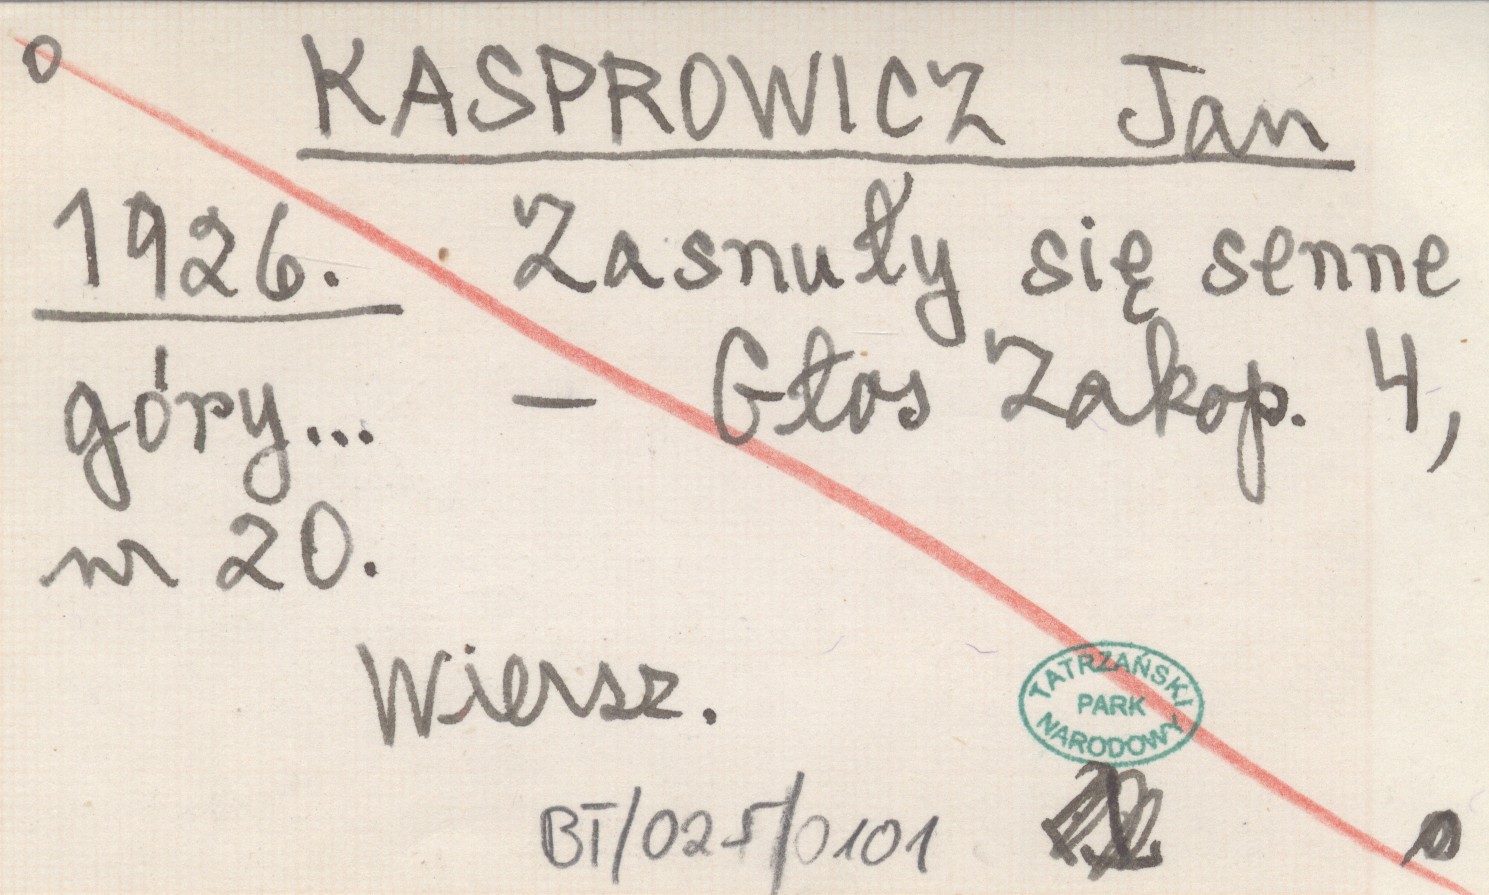 o
KASPROWICZ Jan
1926. Zasnuły się senne
góry... – Głos Zakop. 4,
nr 20.
Wiersz.
TATRZAŃSKI
PARK
NARODOWY
BT/025/0101